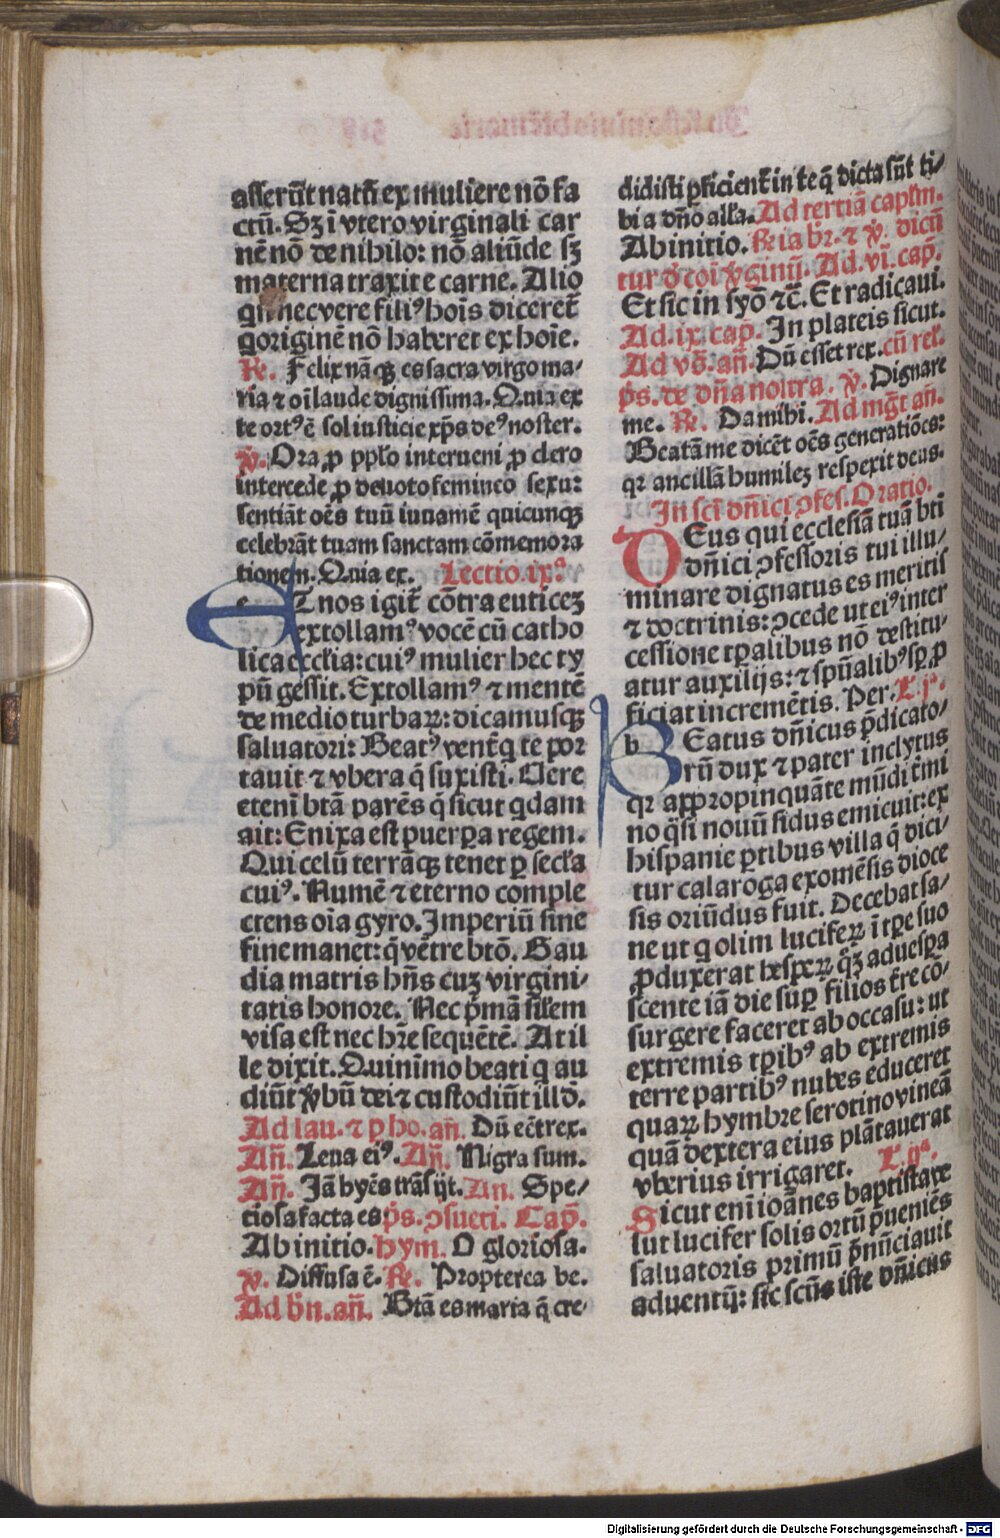 asserūt natū ex muliere nō fa
ctū. Sz ī vtero virginali car
nē nō de nihilo: nō aliūde sz
materna traxit e carne. Alio
qn nec vere filiꝰ hois diceret
q originē nō haberet ex hoīe.
Rꝭ. Felix nāqꝫ es sacra virgo ma-
ria ⁊ oī laude dignissima. Quia ex
te ortꝰ ē sol iusticie xp̄s deꝰ noster.
℣. Ora ꝓ pplo interueni ꝓ clero
intercede ꝓ deuoto femineo sexu:
sentiāt oēs tuū iuuamē quicunqꝫ
celebrāt tuam sanctam cōmemora
tionem. Quia ex. Lectio.ix.ª
ET nos igit cōtra euticez
extollamꝰ vocē cū catho
lica eccl̄ia: cuiꝰ mulier hec ty
pū gessit. Extollamꝰ ⁊ mentē
de medio turbaꝝ: dicamusqꝫ
saluatori: Beatꝰ vent̄ q te por
tauit ⁊ vbera q̄ suxisti. Uere
etenī btā parēs q̄ sicut qdam
ait: Enixa est puerpa regem.
Qui celū terrāqꝫ tenet ꝑ secl̄a
cuiꝰ. Numē ⁊ eterno comple
ctens oīa gyro. Imperiū sine
fine manet: q̄ vētre btō. Gau
dia matris hn̄s cuꝫ virgini-
tatis honore. Nec pͥmā silem
visa est nec hr̄e sequētē. At il
le dixit. Quinimo beati q au
diūt v̄bū dei ⁊ custodiūt illd̄.
Ad lau. ⁊ p ho. an̄. Dū eēt rex.
An̄. Leua eiꝰ. An̄. Nigra sum.
An̄. Jā hyēs trāsijt. An. Spe-
ciosa facta es p̄s. ꝯsueti. Cap̄.
Ab initio. hym. O gloriosa.
℣. Diffusa ē. Rꝭ. Propterea be.
Ad bn̄. an̄. Btā es maria q̄ cre-
didisti ꝑficient̄ in te q̄ dicta sūt ti-
bi a dn̄o all'a. Ad tertiā caplm̄.
Ab initio. Rꝭia br̄. ⁊ ℣. dicū
tur d̄ coī v̄ginij. Ad. vi. cap̄.
Et sic in syō ⁊c̄. Et radicaui.
Ad. ix. cap̄. In plateis sicut.
Ad vs̄. an̄. Dū esset rex. cū rel'.
p̄s. de dn̄a nostra. ℣. Dignare
me. Rꝭ. Da mihi. Ad mg̅t an̄.
Beatā me dicēt oēs generatiōes:
qꝛ ancillā humilez respexit deus.
In scī dn̄ici ꝯfes. Oratio.
DEus qui ecclesiā tuā bti
dn̄ici ꝯfessoris tui illu-
minare dignatus es meritis
⁊ doctrinis: ꝯcede ut eiꝰ inter
cessione tꝑalibus nō destitu-
atur auxilijs: ⁊ spūalibꝰ sꝑ ꝓ
ficiat incremētis. Per. L. jª.
BEatus dn̄icus p̄dicato-
rū dux ⁊ pater inclytus
qꝛ appropinquāte mūdi t̄mi
no q̄si nouū sidus emicuit: ex
hispanie ꝑtibus villa q̄ dici-
tur calaroga exomēsis dioce
sis oriūdus fuit. Decebat sa-
ne ut q olim luciferꝝ ī tꝑe suo
ꝓduxerat hespeꝝ qꝫ aduespa
scente iā die suꝑ filios t̄re cō-
surgere faceret ab occasu: ut
extremis tꝑibꝰ ab extremis
terre partibꝰ nubes educeret
quaꝝ hymbre serotino vineā
quā dextera eius plātauerat
vberius irrigaret. L. ijª.
Sicut enī ioānes baptista ve
lut lucifer solis ortū p̄ueniēs
saluatoris primū p̄nūciauit
aduentū: sic scūs iste dn̄icus
Digitalisierung gefördert durch die Deutsche Forschungsgemeinschaft - DFG